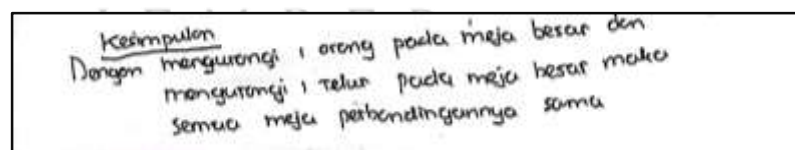 Kesimpulan
Dengan mengurangi 1 orang pada meja besar dan
mengurangi 1 telur pada meja besar maka
semua meja perbandingannya sama